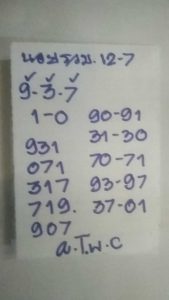 นครธรรม. 12-7
9-3-7
1-0 90-91
31-30
931
071 70-71
317 93-97
719. 37-01
907
a.T.w.c